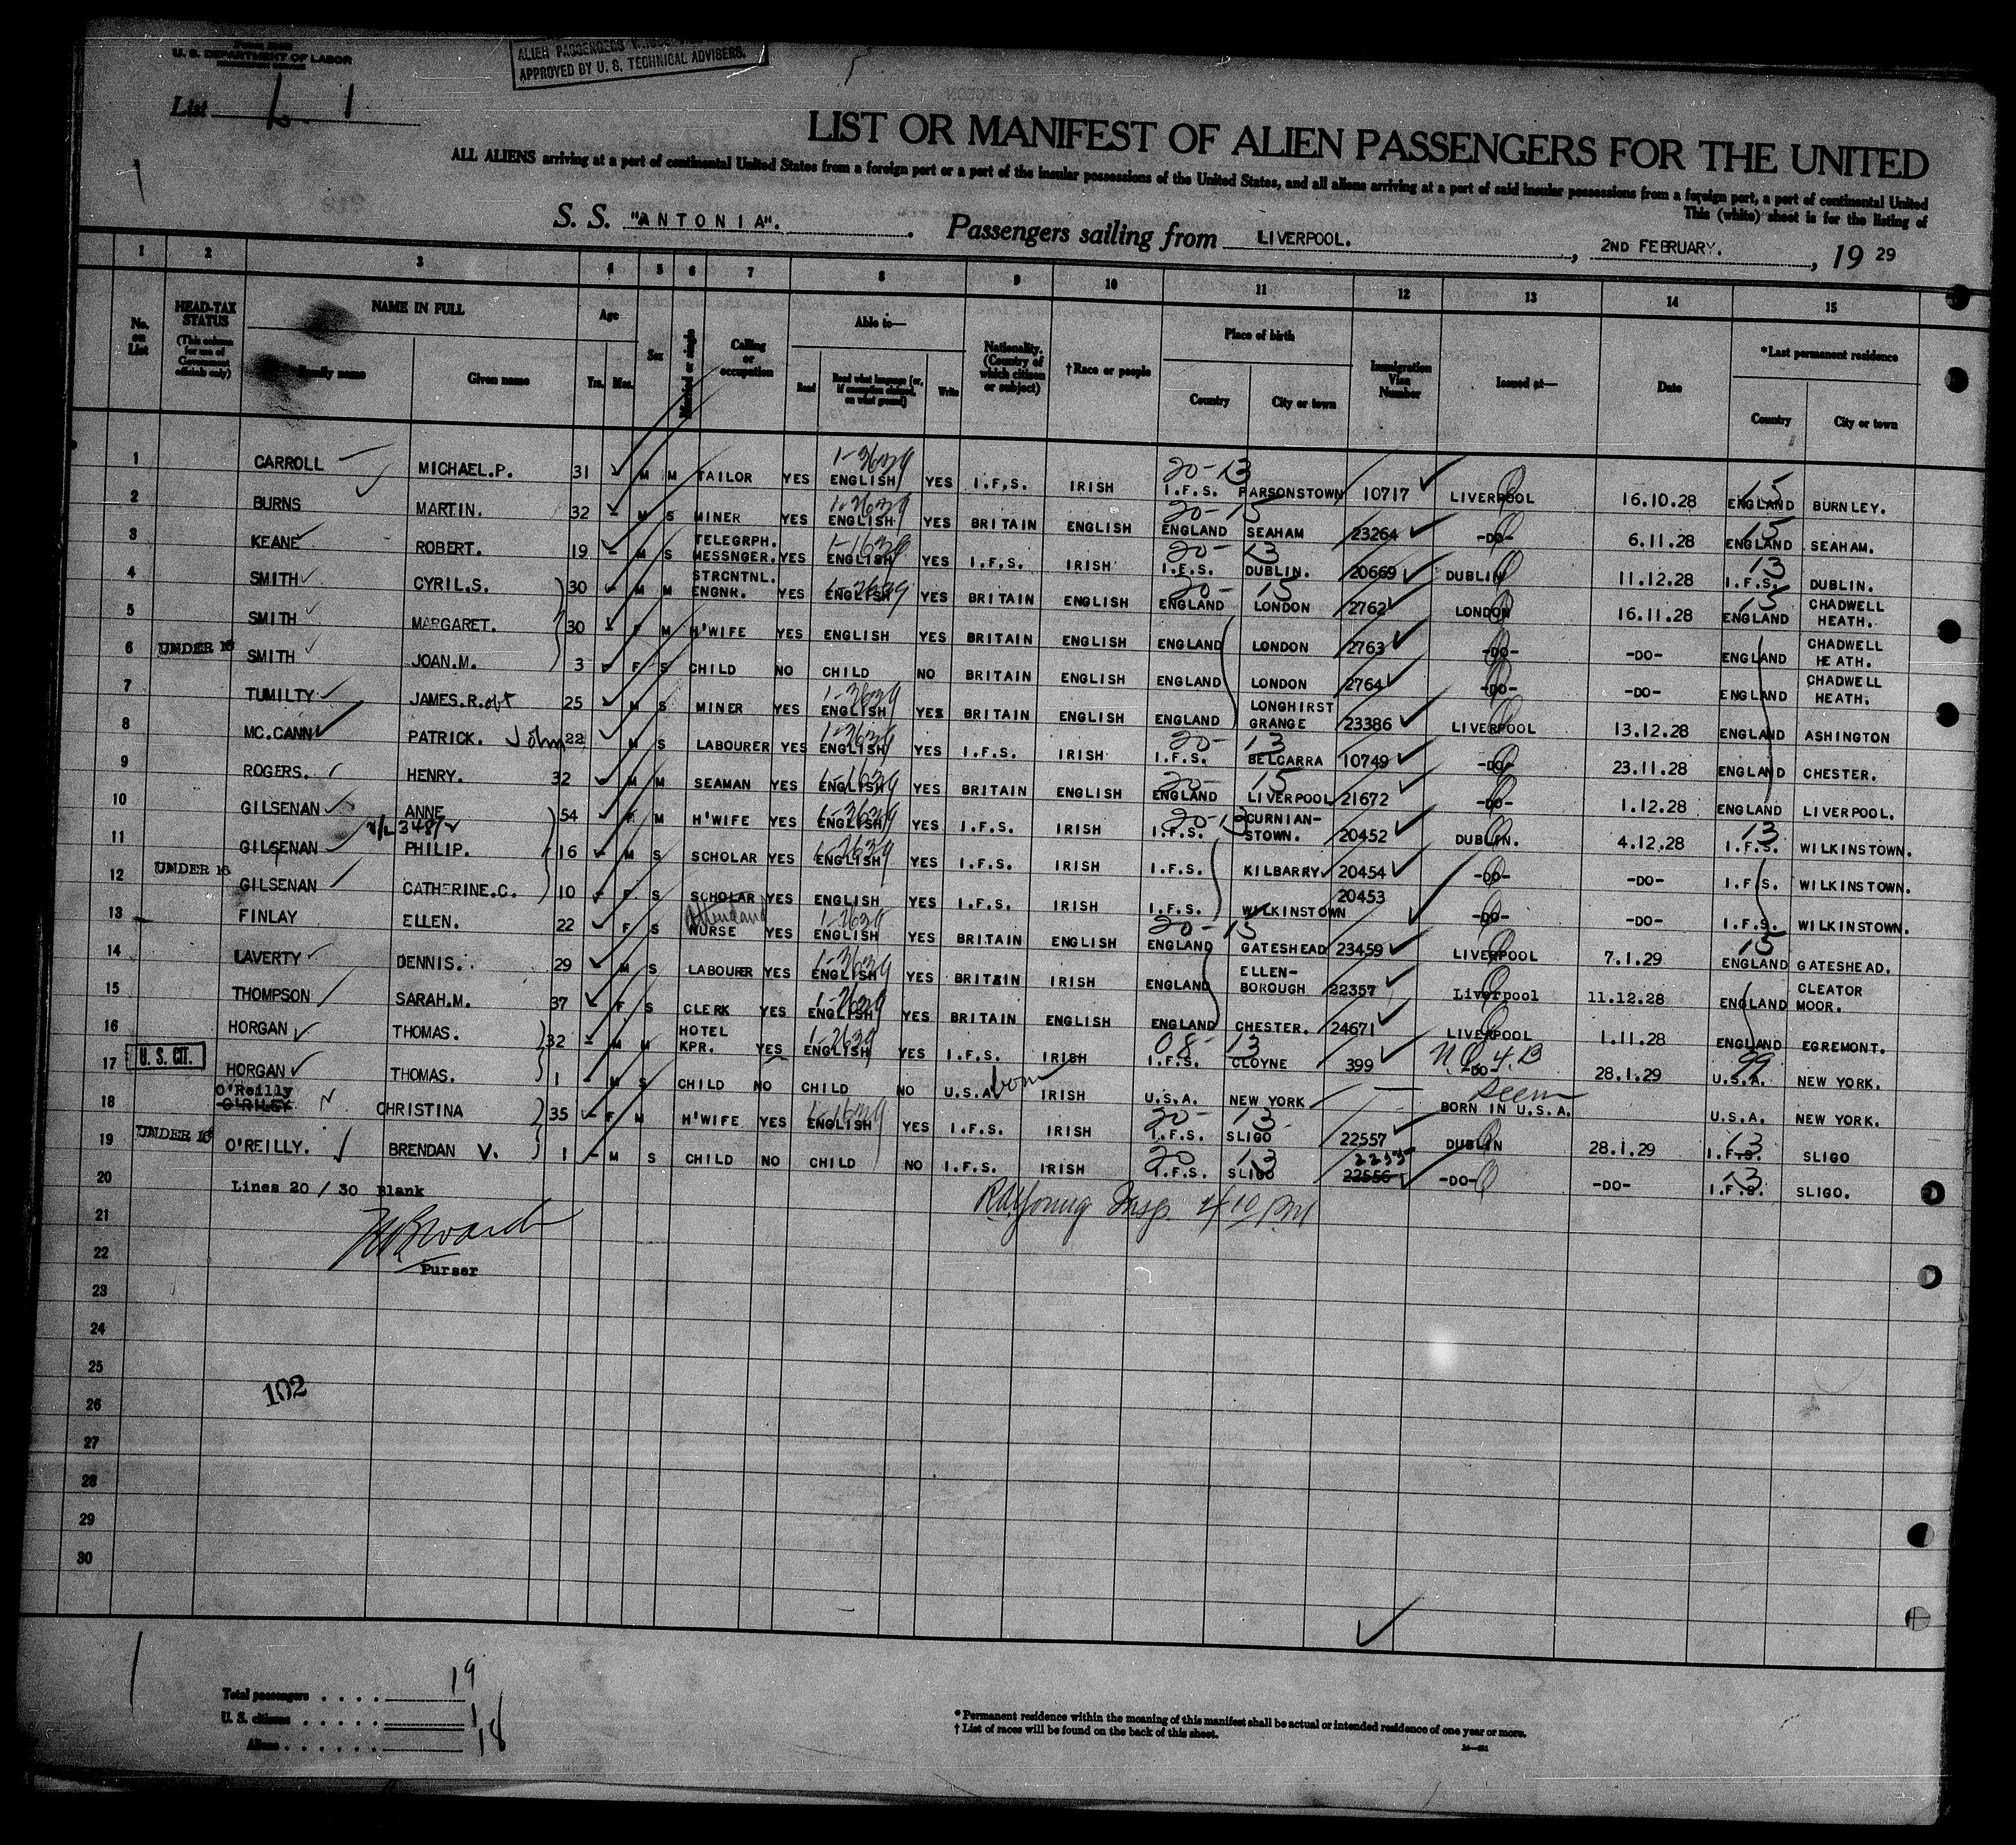 U. S. DEPARTMENT OF LABOR
ALIEN PASSENGERS
APPROVED BY U. S. TECHNICAL ADVISERS.
List 1
LIST OR MANIFEST OF ALIEN PASSENGERS FOR THE UNITED
ALL ALIENS arriving at a port of continental United States from a foreign port or a port of the insular possessions of the United States, and all aliens arriving at a port of said insular possessions from a foreign port, a port of continental United
This (white) sheet is for the listing of
S. S. "ANTONIA". Passengers sailing from LIVERPOOL. , 2ND FEBRUARY. , 19 29
1 2 3 4 5 6 7 8 9 10 11 12 13 14 15
No. on List
HEAD-TAX STATUS (This column for use of Government officials only)
NAME IN FULL
Family name Given name
Age Yrs. Mos.
Sex
Married or single
Calling or occupation
Able to—
Read Read what language (or, if exemption claimed, on what ground) Write
Nationality. (Country of which citizen or subject)
†Race or people
Place of birth
Country City or town
Immigration Visa Number
Issued at—
Date
*Last permanent residence
Country City or town
1 CARROLL MICHAEL.P. 31 M M TAILOR YES ENGLISH YES I.F.S. IRISH 20-13 I.F.S. PARSONSTOWN 10717 LIVERPOOL 16.10.28 15 ENGLAND BURNLEY.
2 BURNS MARTIN. 32 M S MINER YES ENGLISH YES BRITAIN ENGLISH 20-15 ENGLAND SEAHAM 23264 -DO- 6.11.28 15 ENGLAND SEAHAM.
3 KEANE ROBERT. 19 M S TELEGRPH. MESSNGER. YES ENGLISH YES I.F.S. IRISH 20-13 I.F.S. DUBLIN. 20669 DUBLIN 11.12.28 13 I.F.S. DUBLIN.
4 SMITH CYRIL.S. 30 M M STRCNTNL. ENGNR. YES ENGLISH YES BRITAIN ENGLISH 20-15 ENGLAND LONDON 2762 LONDON 16.11.28 15 ENGLAND CHADWELL HEATH.
5 SMITH MARGARET. 30 F M H'WIFE YES ENGLISH YES BRITAIN ENGLISH ENGLAND LONDON 2763 -DO- -DO- ENGLAND CHADWELL HEATH.
6 UNDER 16 SMITH JOAN.M. 3 F S CHILD NO CHILD NO BRITAIN ENGLISH ENGLAND LONDON 2764 -DO- -DO- ENGLAND CHADWELL HEATH.
7 TUMILTY JAMES.R.obt 25 M S MINER YES ENGLISH YES BRITAIN ENGLISH ENGLAND LONGHIRST GRANGE 23386 LIVERPOOL 13.12.28 ENGLAND ASHINGTON
8 MC.CANN PATRICK. John 22 M S LABOURER YES ENGLISH YES I.F.S. IRISH 20-13 I.F.S. BELCARRA 10749 -DO- 23.11.28 ENGLAND CHESTER.
9 ROGERS. HENRY. 32 M M SEAMAN YES ENGLISH YES BRITAIN ENGLISH 20-15 ENGLAND LIVERPOOL 21672 -DO- 1.12.28 ENGLAND LIVERPOOL.
10 GILSENAN ANNE 54 F M H'WIFE YES ENGLISH YES I.F.S. IRISH 20-13 I.F.S. CURNIAN-STOWN. 20452 DUBLIN. 4.12.28 13 I.F.S. WILKINSTOWN.
11 GILSENAN PHILIP. 16 M S SCHOLAR YES ENGLISH YES I.F.S. IRISH I.F.S. KILBARRY 20454 -DO- -DO- I.F.S. WILKINSTOWN.
12 UNDER 16 GILSENAN CATHERINE.C. 10 F S SCHOLAR YES ENGLISH YES I.F.S. IRISH I.F.S. WILKINSTOWN 20453 -DO- -DO- I.F.S. WILKINSTOWN.
13 FINLAY ELLEN. 22 F S Attendant NURSE YES ENGLISH YES BRITAIN ENGLISH 20-15 ENGLAND GATESHEAD 23459 LIVERPOOL 7.1.29 15 ENGLAND GATESHEAD.
14 LAVERTY DENNIS. 29 M S LABOURER YES ENGLISH YES BRITAIN IRISH ENGLAND ELLEN-BOROUGH 22357 Liverpool 11.12.28 ENGLAND CLEATOR MOOR.
15 THOMPSON SARAH.M. 37 F S CLERK YES ENGLISH YES BRITAIN ENGLISH ENGLAND CHESTER. 24671 LIVERPOOL 1.11.28 ENGLAND EGREMONT.
16 HORGAN THOMAS. 32 M M HOTEL KPR. YES ENGLISH YES I.F.S. IRISH 08-13 I.F.S. CLOYNE 399 -DO- 28.1.29 99 U.S.A. NEW YORK.
17 U. S. CIT. HORGAN THOMAS. 1 M S CHILD NO CHILD NO U.S.A. born IRISH U.S.A. NEW YORK BORN IN U.S.A. U.S.A. NEW YORK.
18 O'Reilly CHRISTINA 35 F M H'WIFE YES ENGLISH YES I.F.S. IRISH 20-13 I.F.S. SLIGO 22557 DUBLIN 28.1.29 13 I.F.S. SLIGO
19 UNDER 16 O'REILLY. BRENDAN V. 1 M S CHILD NO CHILD NO I.F.S. IRISH 20 13 I.F.S. SLIGO 22556 -DO- -DO- 13 I.F.S. SLIGO.
20 Lines 20 / 30 Blank
21
22 Purser
23
24
25
102
26
27
28
29
30
Total passengers 19
U. S. citizens 1
Aliens 18
* Permanent residence within the meaning of this manifest shall be actual or intended residence of one year or more.
† List of races will be found on the back of this sheet.